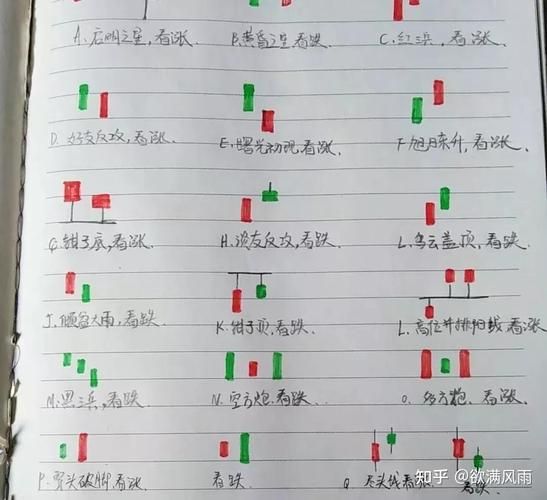 A. 启明之星,看涨.
B. 黄昏之星看跌.
C. 红三兵,看涨.
D. 好友反攻,看涨.
E. 曙光初现看涨.
F. 旭日东升,看涨.
G. 钳子底,看涨.
H. 淡友反攻,看跌.
L. 乌云盖顶,看跌.
J. 倾盆大雨,看跌.
K. 钳子顶,看跌.
L. 高位并排阳线 看涨
M. 黑三兵,看跌.
N. 空方炮.看跌.
O. 多方炮. 看涨
P. 穿头破脚 看涨
看跌.
Q. 尽头线看涨.
看跌.
知乎 @欲满风雨